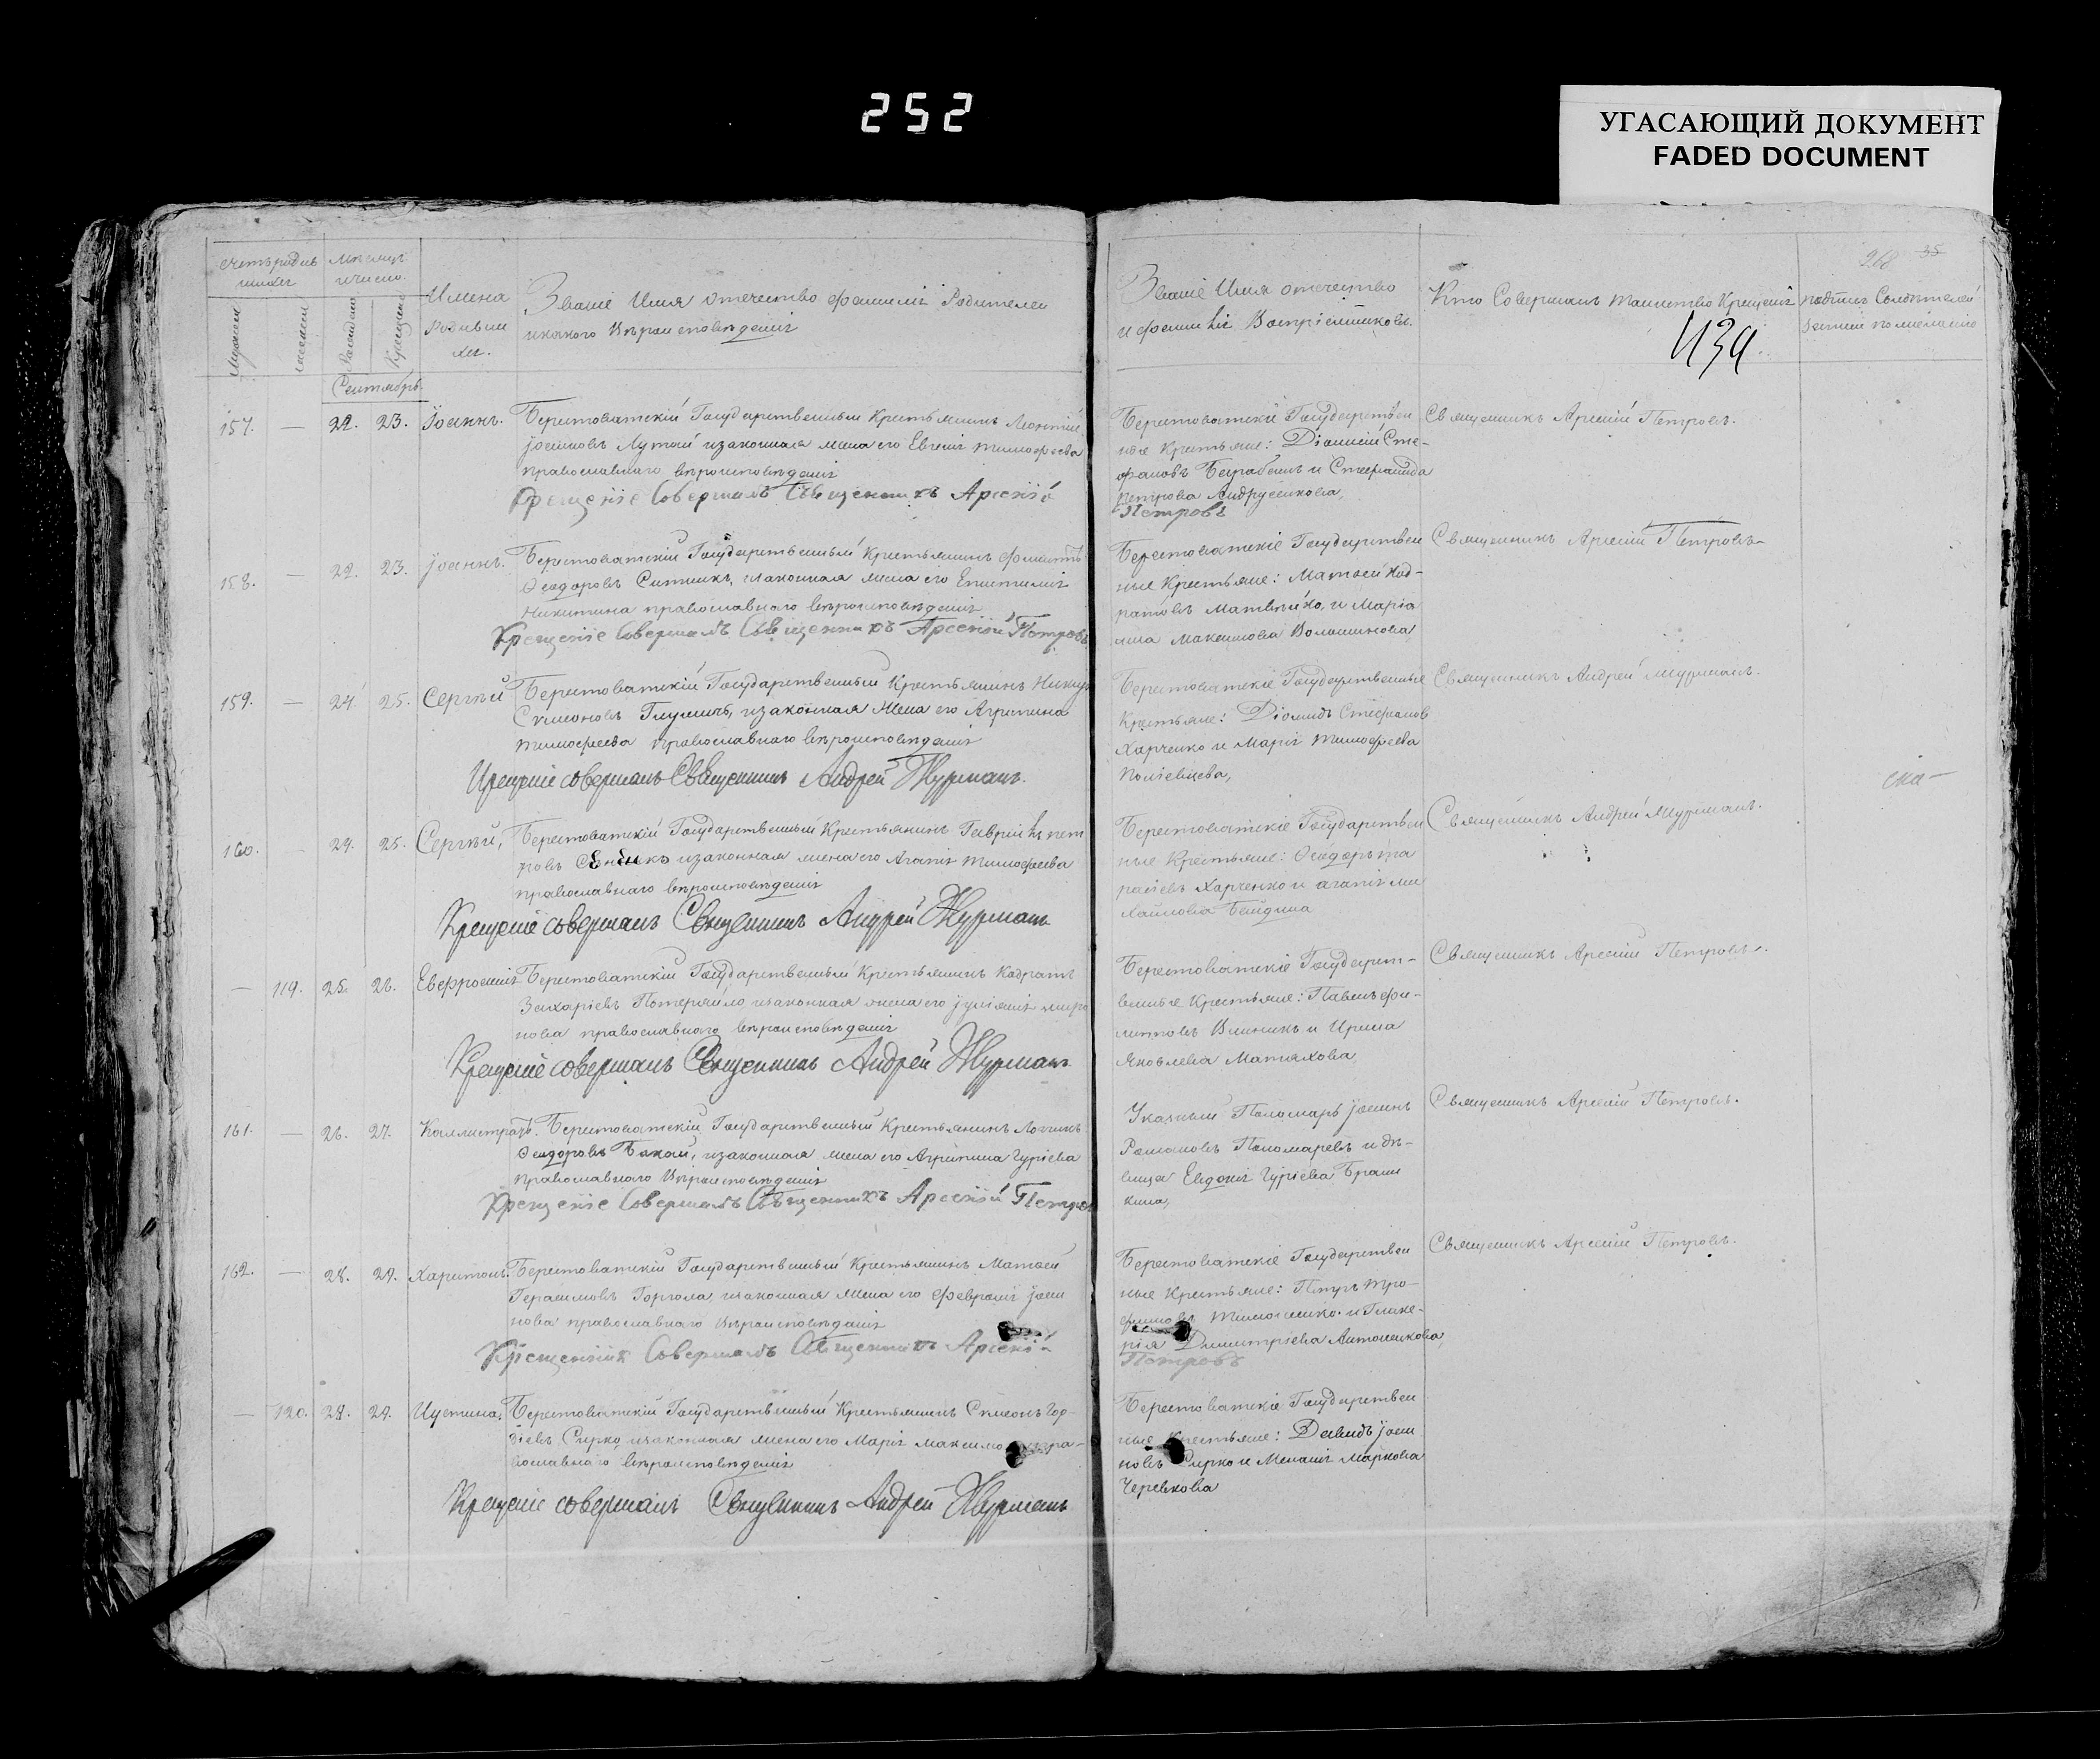 252
УГАСАЮЩИЙ ДОКУМЕНТ
FADED DOCUMENT
Счетъ родив
шихся
Мѣсяцъ
и число.
Рожденія
Крещенія
Имена
Родивши
хся.
Званіе Имя отечество фамилія Родителей
и какого Вѣроисповѣданія
Званіе Имя отечество
и фамилія Воспріемниковъ.
Кто Совершалъ Таинство Крещенія
439
Сентябрь.
157. — 22. 23. Іоаннъ. Берестоватскій Государственный Крестьянинъ Леонтій
Іоанновъ Лутай и законная жена его Евгенія Тимофеева
православнаго вѣроисповѣданія
Крещеніе Совершалъ Священникъ Арсеній
Петровъ
Берестоватскіе Государствен
ные Крестьяне: Діонисій Сте-
фановъ Барабашъ и Стефанида
Петрова Андрусенкова,
Священникъ Арсеній Петровъ.
158. — 22. 23. Іоаннъ. Берестоватскій Государственный Крестьянинъ Филиппъ
Ѳеодоровъ Ситникъ, и законная жена его Епистимія
Никитина православнаго вѣроисповѣданія
Крещеніе Совершалъ Священникъ Арсеній Петровъ
Берестоватскіе Государствен
ные Крестьяне: Матвей Код-
ратовъ Матвѣйко, и Маріа
Максимова Волошинова
Священникъ Арсеній Петровъ
159. — 24. 25. Сергѣй Берестоватскій Государственный Крестьянинъ
Симоновъ и законная Жена его Агрипина
Тимофеева православнаго вѣроисповѣданія
Крещеніе совершалъ Священникъ Андрей Журманъ.
Берестоватскіе Государственные
Крестьяне: Діомидъ Стефановъ
Харченко и Марія Тимофеева
Священникъ Андрей Журманъ.
160. — 24. 25. Сергѣй, Берестоватскій Государственный Крестьянинъ Гавріилъ Пет
ровъ и законная жена его Агапія Тимофеева
православнаго вѣроисповѣданія
Крещеніе совершалъ Священникъ Андрей Журманъ
Берестоватскіе Государствен
ные Крестьяне: Ѳеодоръ Та
расіевъ Харченко и Агапія Ми
хайлова
Священникъ Андрей Журманъ.
— 119. 25. 26. Евфросинія Берестоватскій Государственный Крестьянинъ Кодратъ
Захаріевъ Потеряйло, и законная жена его Іуліанія Миро
нова православнаго вѣроисповѣданія
Крещеніе совершалъ Священникъ Андрей Журманъ.
Берестоватскіе Государст-
венные Крестьяне: Павелъ Фи-
липовъ и Ирина
Яковлева Матяхова
Священникъ Арсеній Петровъ.
161. — 26. 27. Каллистратъ. Берестоватскій Государственный Крестьянинъ Логгинъ
Ѳеодоровъ Бакай, и законная жена его Агрипина Гуріева
православнаго Вѣроисповѣданія
Крещеніе Совершалъ Священникъ Арсеній Петров
Указный Пономарь Іоаннъ
Романовъ Пономаревъ и дѣ-
вица Евдокія Гуріева
Священникъ Арсеній Петровъ.
162. — 28. 29. Харитонъ. Берестоватскій Государственный Крестьянинъ Матвей
Герасимовъ Горгола, и законная жена его Февронія Іоан
нова православнаго Вѣроисповѣданія
Совершалъ Священникъ Арсеній
Петровъ
Берестоватскіе Государствен
ные Крестьяне: Петръ Тро-
фимовъ Тимошенко, и Глике-
рія Димитріева Антоненкова,
Священникъ Арсеній Петровъ.
— 120. 28. 29. Иустина, Берестоватскій Государственный Крестьянинъ Симеонъ Гор-
діевъ Сирко, и законная жена его Марія
вославнаго вѣроисповѣданія
Крещеніе совершалъ Священникъ Андрей Журманъ
Берестоватскіе Государствен
ные Крестьяне: Давидъ Іоан
новъ Сирко и Меланія Маркова
Черевкова